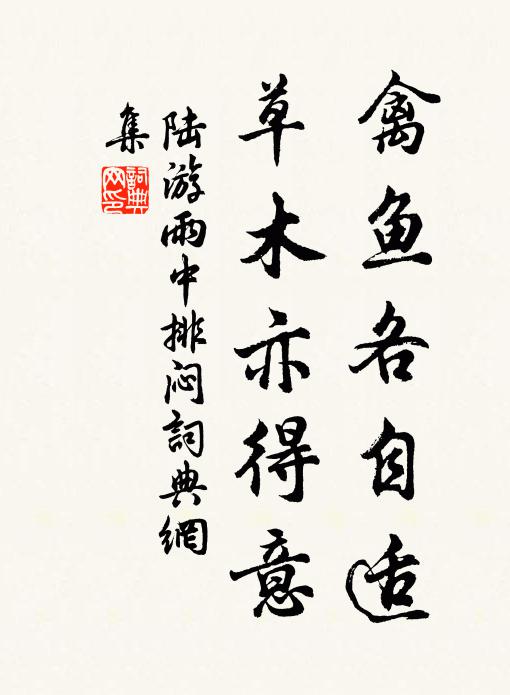 禽鱼各自适
草木亦得意
陆游雨中排闷词典網
集
詞典
网印